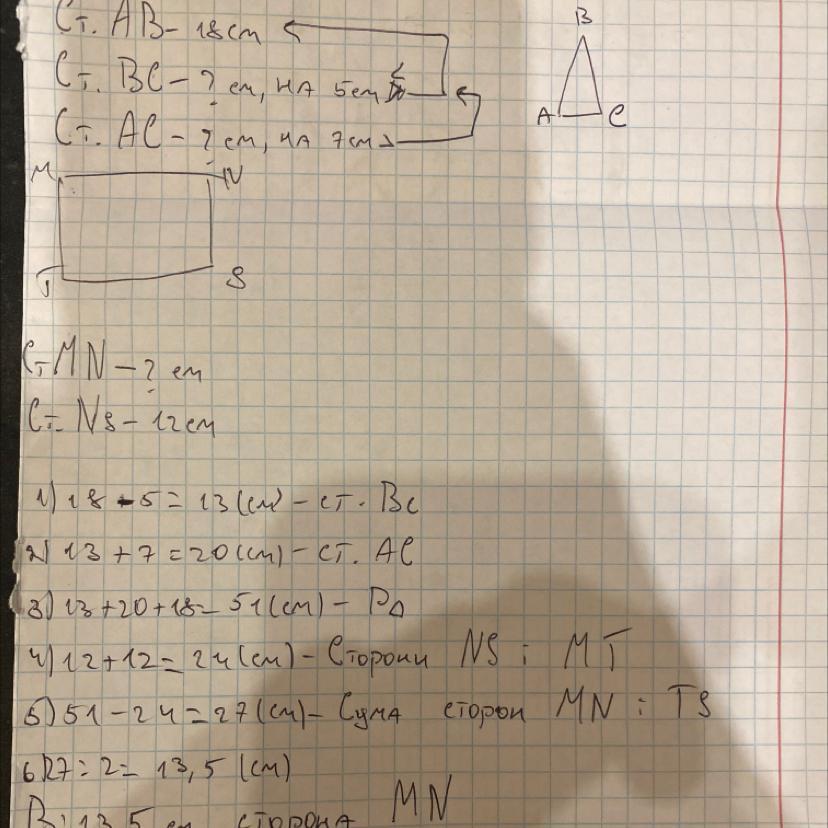 Ст. AB – 18 см
B
Ст. BC – ? см, на 5 см <
A C
Ст. AC – ? см, на 7 см >
M N
T S
Ст MN – ? см
Ст. NS – 12 см
1) 18 - 5 = 13 (см) – ст. BC
2) 13 + 7 = 20 (см) – ст. AC
3) 13 + 20 + 18 = 51 (см) – P△
4) 12 + 12 = 24 (см) – Сторони NS і MT
5) 51 – 24 = 27 (см) – Сума сторон MN і TS
6) 27 : 2 = 13,5 (см)
В: 13,5 см сторона MN